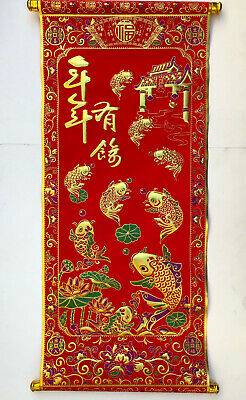 福
年年
有餘